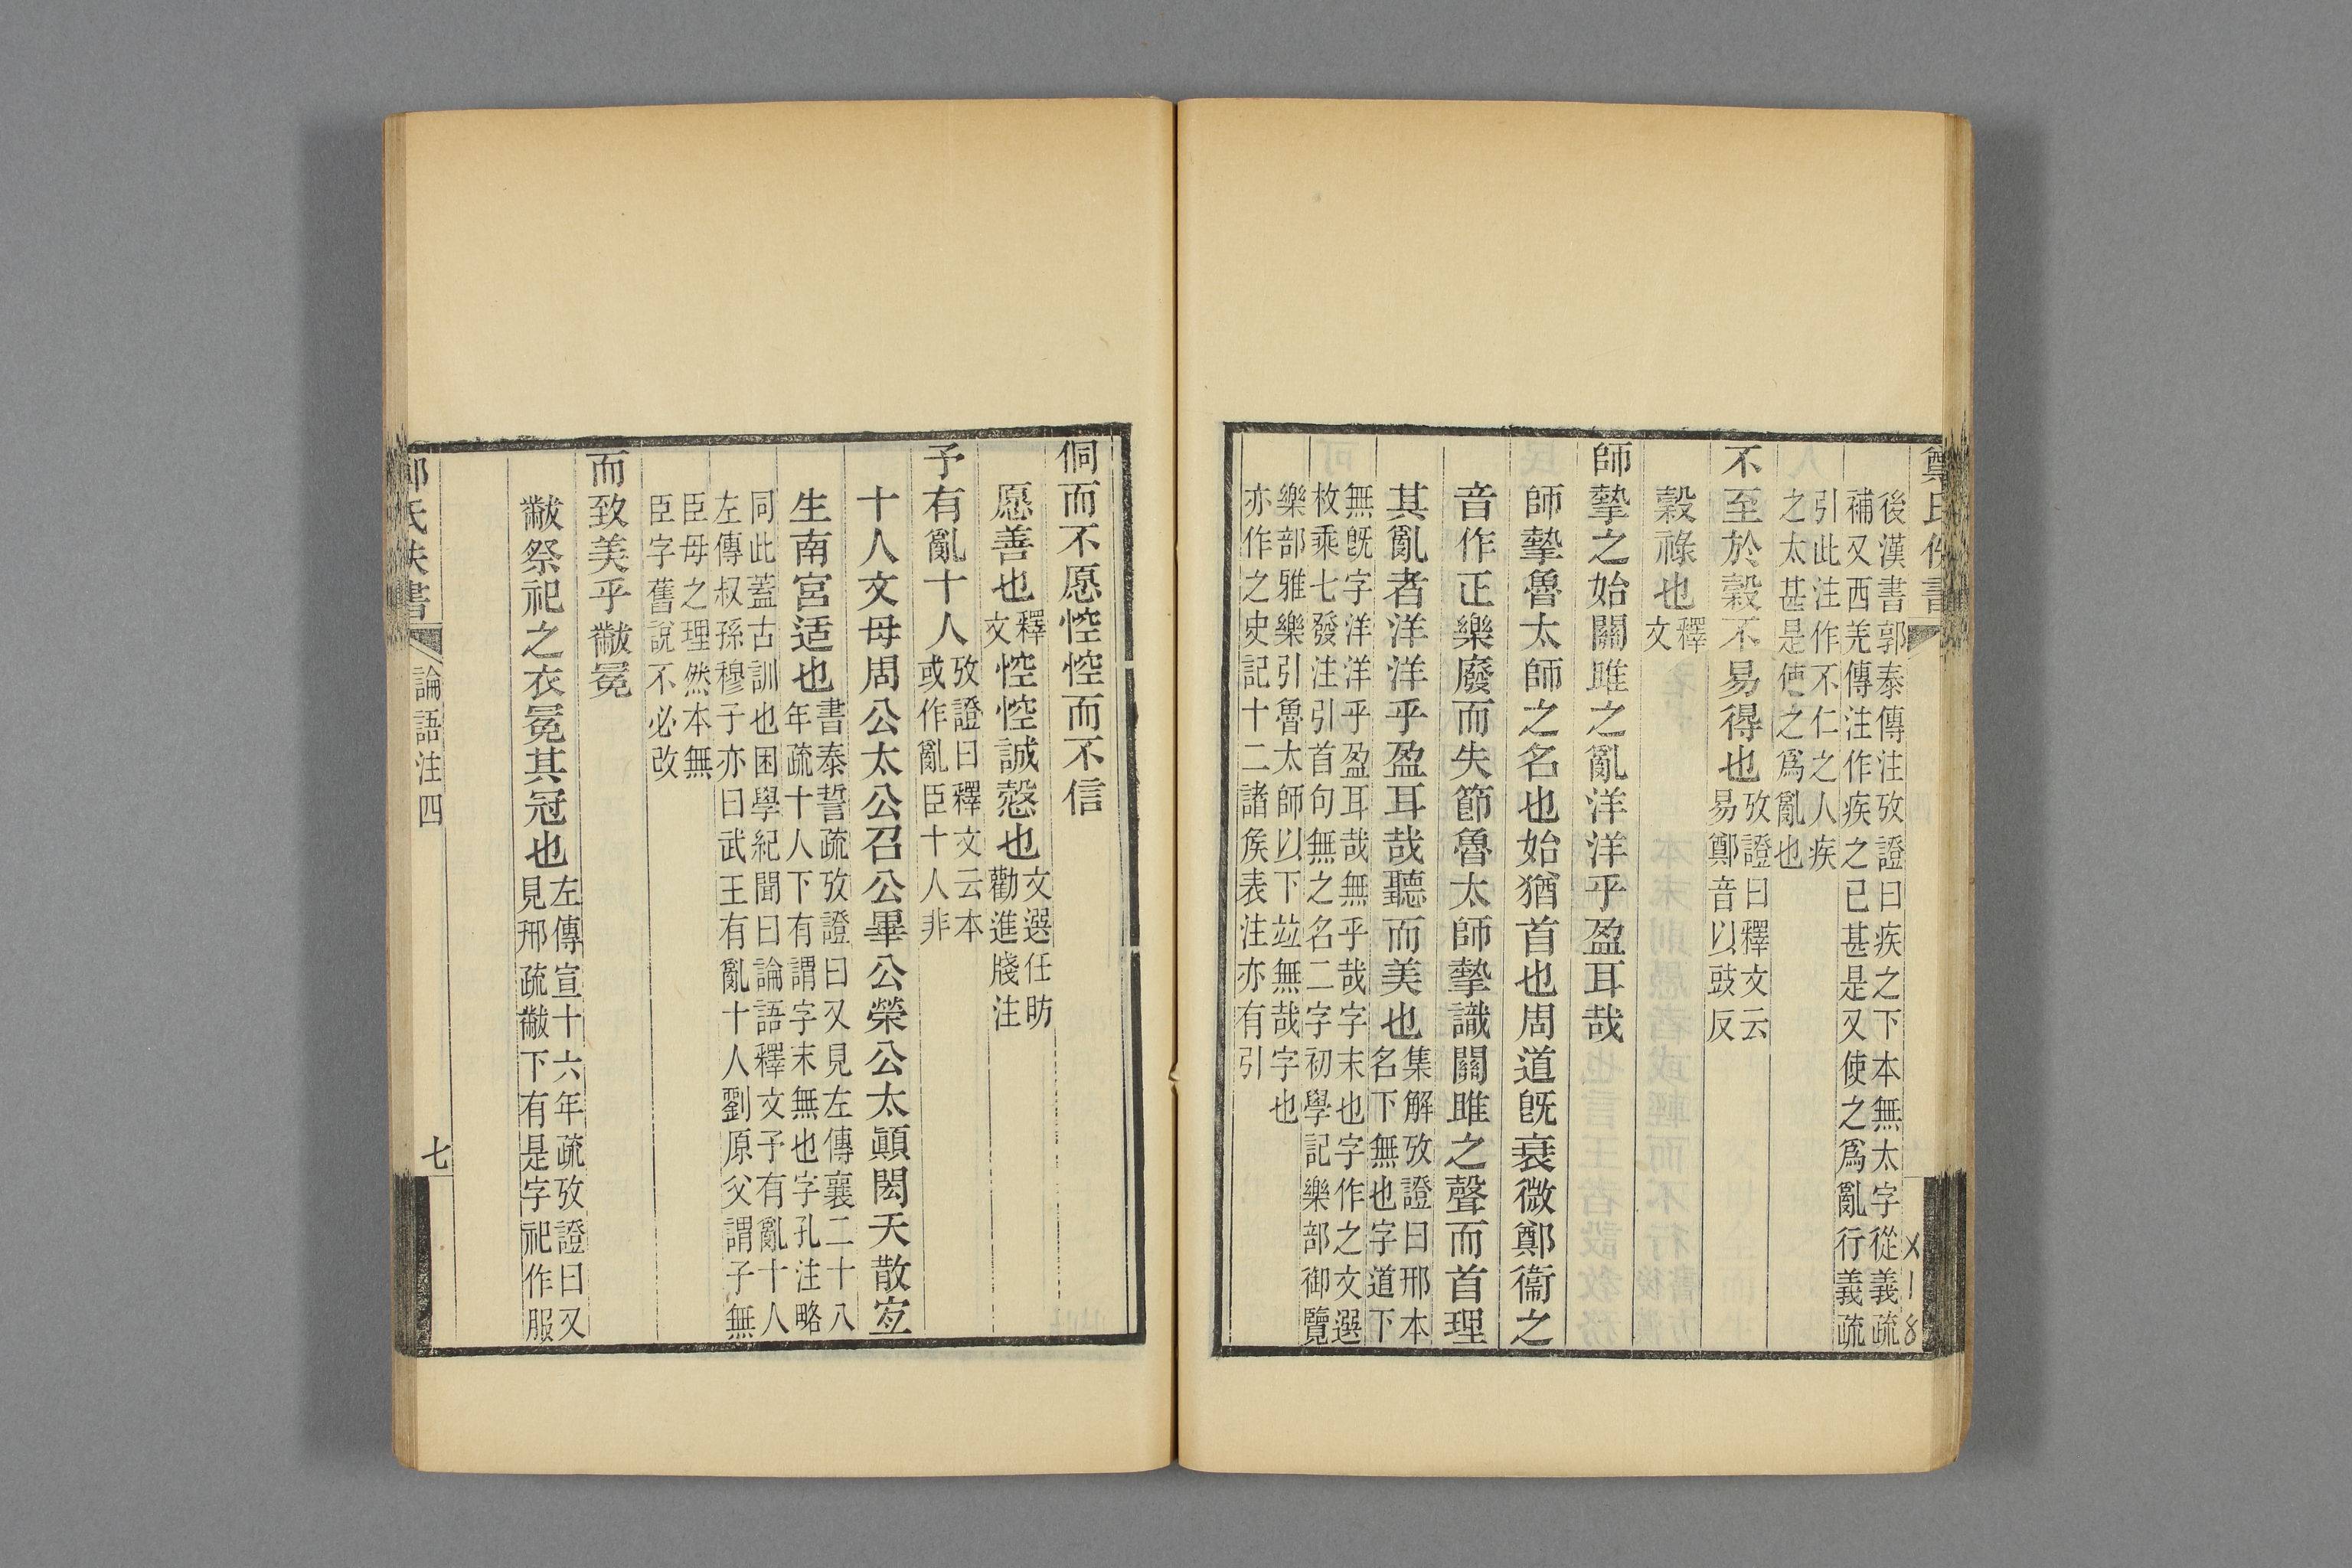 後漢書郭泰傳注攷證曰疾之下本無太字從義疏
補又西羌傳注作疾之已甚是又使之爲亂行義疏
引此注作不仁之人疾
之太甚是使之爲亂也
不至於穀不易得也攷證曰釋文云
易鄭音以豉反
穀祿也釋
文
師摯之始關雎之亂洋洋乎盈耳哉
師摯魯太師之名也始猶首也周道旣衰微鄭衞之
音作正樂廢而失節魯太師摯識關雎之聲而首理
其亂者洋洋乎盈耳哉聽而美也集解攷證曰邢本
名下無也字道下
無旣字洋洋乎盈耳哉無乎哉字末也字作之文選
枚乘七發注引首句無之名二字初學記樂部御覽
樂部雅樂引魯太師以下竝無哉字也
亦作之史記十二諸矦表注亦有引
侗而不愿悾悾而不信
愿善也釋
文悾悾誠慤也文選任昉
勸進牋注
予有亂十人攷證曰釋文云本
或作亂臣十人非
十人文母周公太公召公畢公榮公太顚閎夭散宐
生南宮适也書泰誓疏攷證曰又見左傳襄二十八
年疏十人下有謂字末無也字孔注略
同此蓋古訓也困學紀聞曰論語釋文予有亂十人
左傳叔孫穆子亦曰武王有亂十人劉原父謂子無
臣母之理然本無
臣字舊說不必改
而致美乎黻冕
黻祭祀之衣冕其冠也左傳宣十六年疏攷證曰又
見邢疏黻下有是字祀作服
論語注四
七